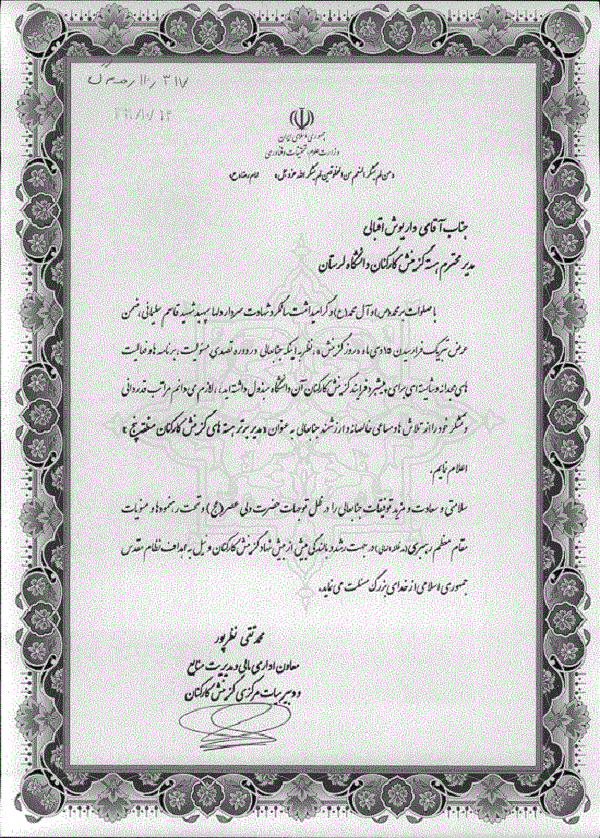 ۳۱۷ / ۱۱ /
جمهوری اسلامی ایران
وزارت علوم، تحقیقات و فناوری
«من لم یشکر المنعم من المخلوقین لم یشکر الله عزوجل» امام رضا (ع)
جناب آقای داریوش اقبالی
مدیر محترم هسته گزینش کارکنان دانشگاه لرستان
با صلوات بر محمد (ص) و آل محمد (ع) و گرامیداشت سالگرد شهادت سردار دلها سپهبد شهید قاسم سلیمانی، ضمن
عرض تبریک فرا رسیدن ۱۵ دی ماه «روز گزینش»، نظر به اینکه جنابعالی در دوره تصدی مسئولیت، برنامه ها و فعالیت
های مجدانه و شایسته ای برای پیشبرد فرایند گزینش کارکنان آن دانشگاه مبذول داشته اید، لازم می دانم مراتب قدردانی
و تشکر خود را از تلاش ها و مساعی خالصانه و ارزشمند جنابعالی به عنوان «مدیر برتر هسته های گزینش کارکنان منطقه پنج»
اعلام نمایم.
سلامتی و سعادت و مزید توفیقات جنابعالی را در ظل توجهات حضرت ولی عصر (عج) و تحت رهنمودها و منویات
مقام معظم رهبری (مد ظله العالی) در جهت رشد و بالندگی بیش از پیش نهاد گزینش کارکنان و نیل به اهداف نظام مقدس
جمهوری اسلامی از خدای بزرگ مسئلت می نماید.
محمد تقی نظرپور
معاون اداری، مالی و مدیریت منابع
و دبیر هیات مرکزی گزینش کارکنان